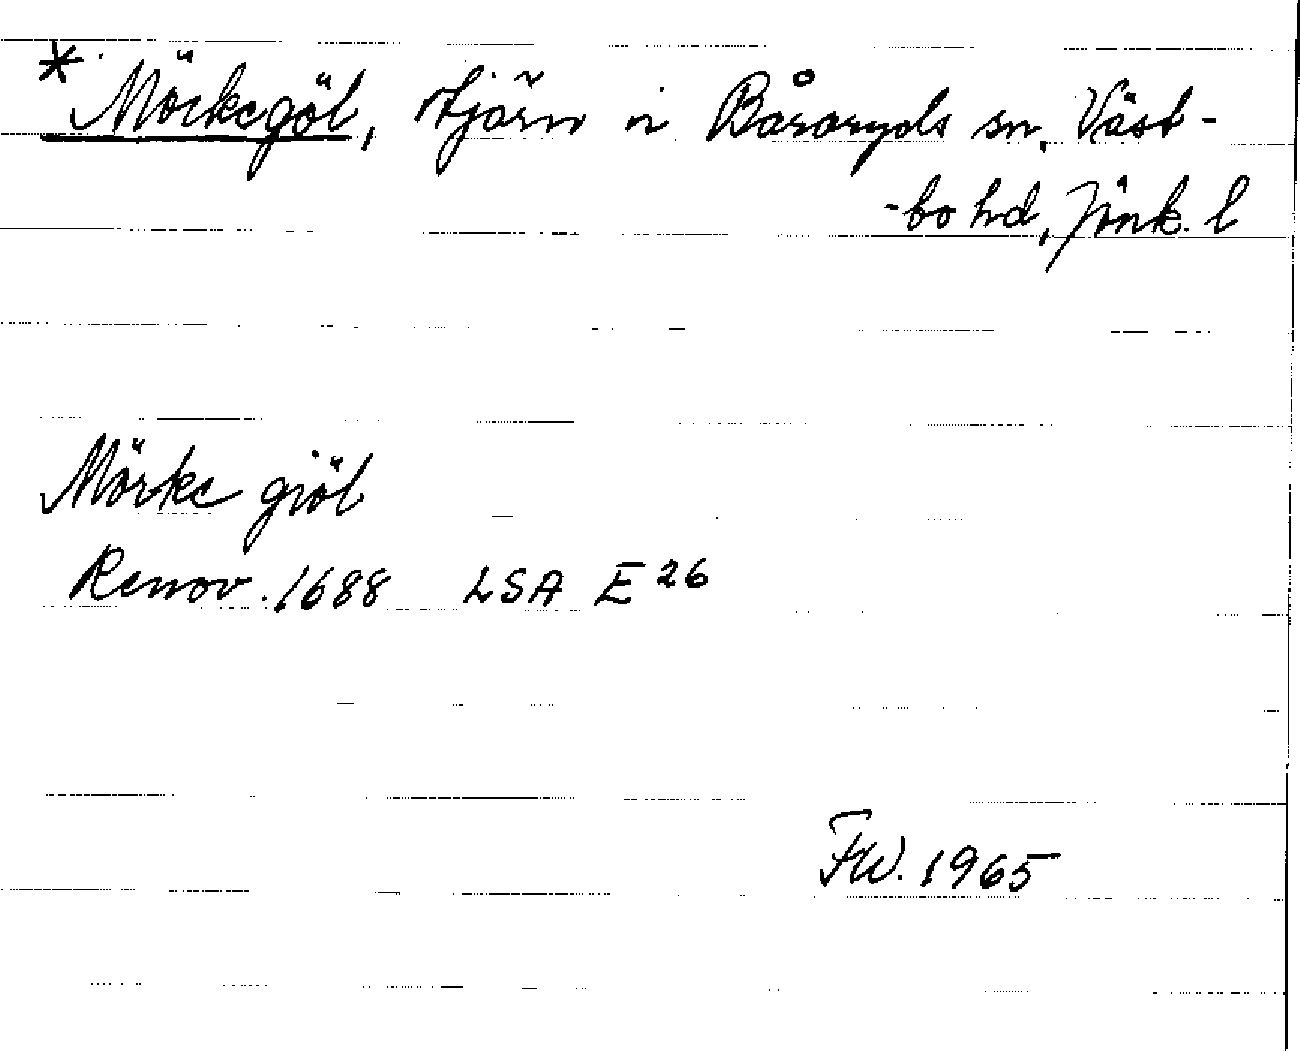 * Mörkegöl, tjärn i Båraryds sn, Väst-
-bo hd, Jönk. l
Mörke giöl
Renov. 1688 LSA E 26
FW. 1965